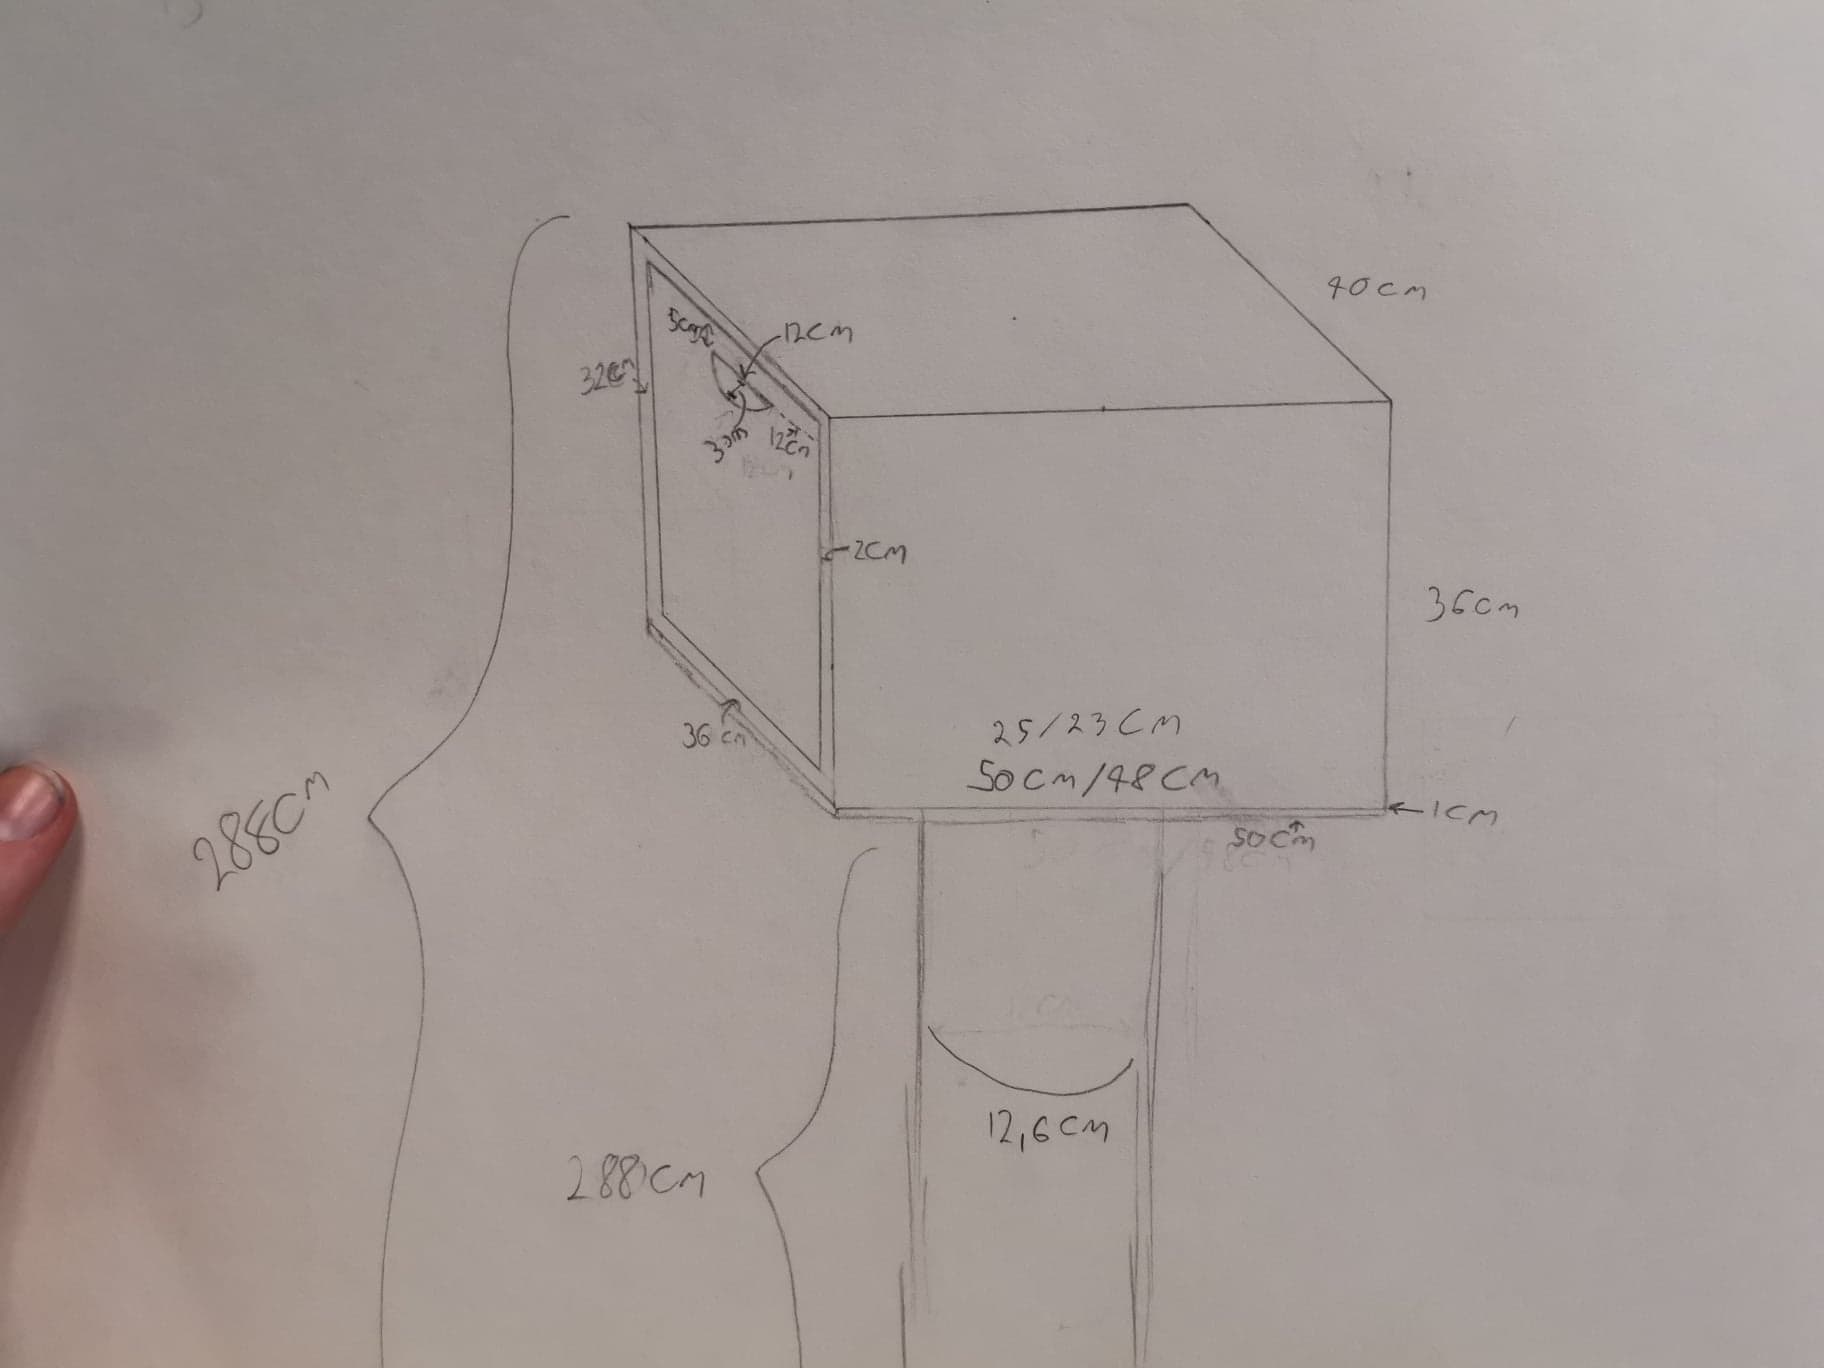 40cm
12cm
5cm
32cm
3cm
12cm
2cm
36cm
25/23CM
36 cm
50cm/48CM
1CM
50cm
288cm
12,6CM
288cm